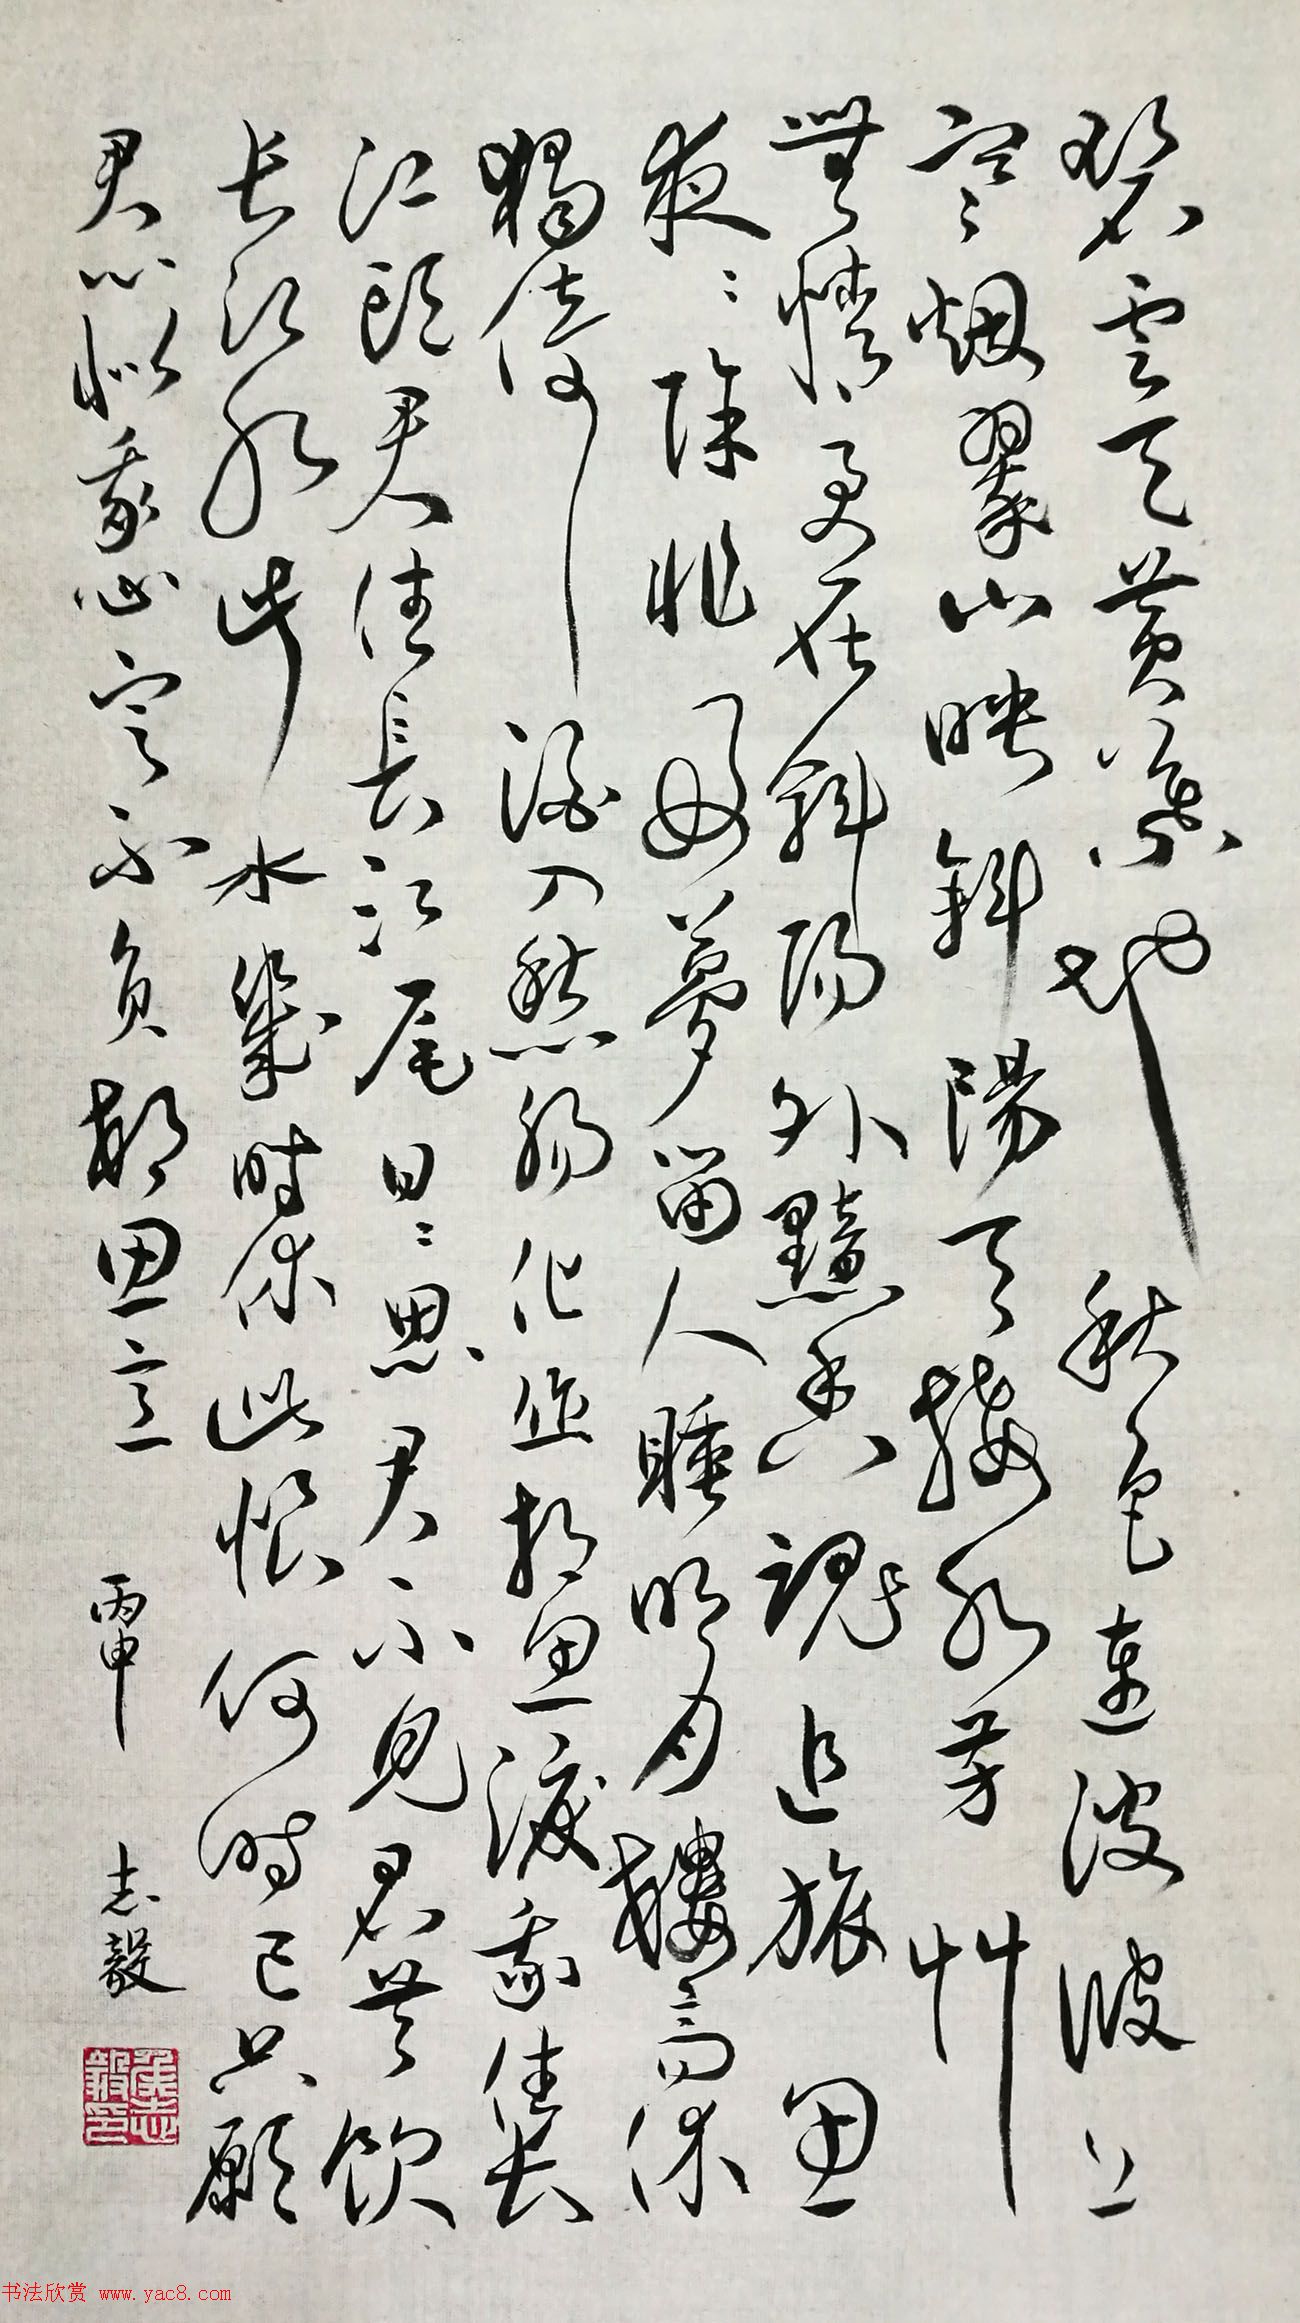 碧云天黄葉地秋色連波波上
寒烟翠山映斜陽天接水芳草
無情更在斜陽外黯鄉魂追旅思
夜〻除非好夢留人睡明月樓高休
獨倚酒入愁腸化作相思淚我住長
江頭君住長江尾日〻思君不見君共飲
長江水此水幾時休此恨何時已只願
君心似我心定不負相思意
丙申 志毅
书法欣赏 www.yac8.com